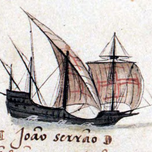 João serrão